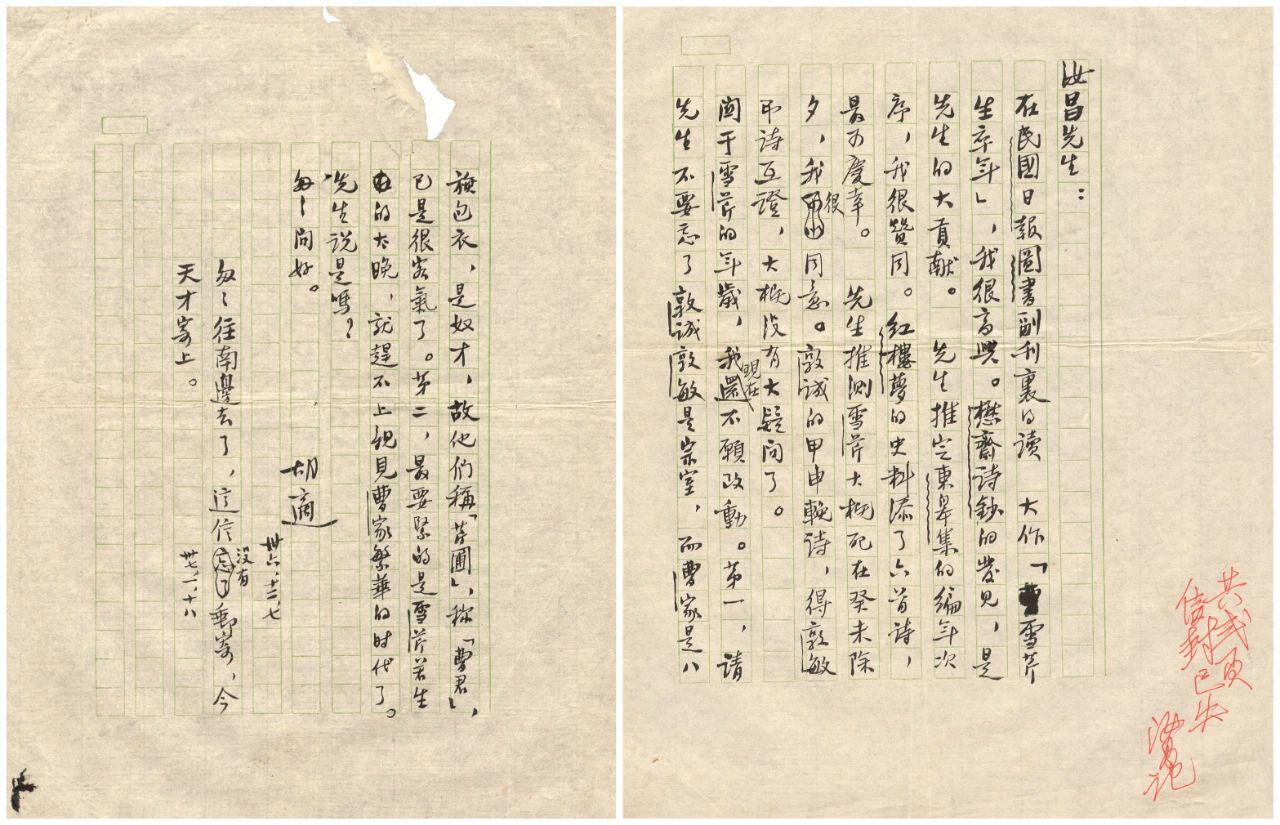 汝昌先生：
在民國日報圖書副刊裏得讀　大作「曹雪芹
生卒年」，我很高興。懋齋詩鈔的發見，是
先生的大貢獻。　先生推定東皋集的編年次
序，我很贊同。紅樓夢的史料添了六首詩，
最可慶幸。　先生推測雪芹大概死在癸未除
夕，我很同意。敦誠的甲申輓詩，得敦敏
弔詩互證，大概沒有大疑问了。
関于雪芹的年歲，我現在還不願改動。第一，請
先生不要忘了敦誠敦敏是宗室，而曹家是八
旗包衣，是奴才，故他們稱「芹圃」，称「曹君」，
已是很客氣了。第二，最要緊的是雪芹若生
的太晚，就趕不上親見曹家繁華的时代了。
先生说是嗎？
匆匆问好。
胡適
卅六，十二，七
匆匆往南邊去了，這信忘了沒有郵寄，今
天才寄上。
卅七，一，十八
共弍頁
信封已失
汝昌記